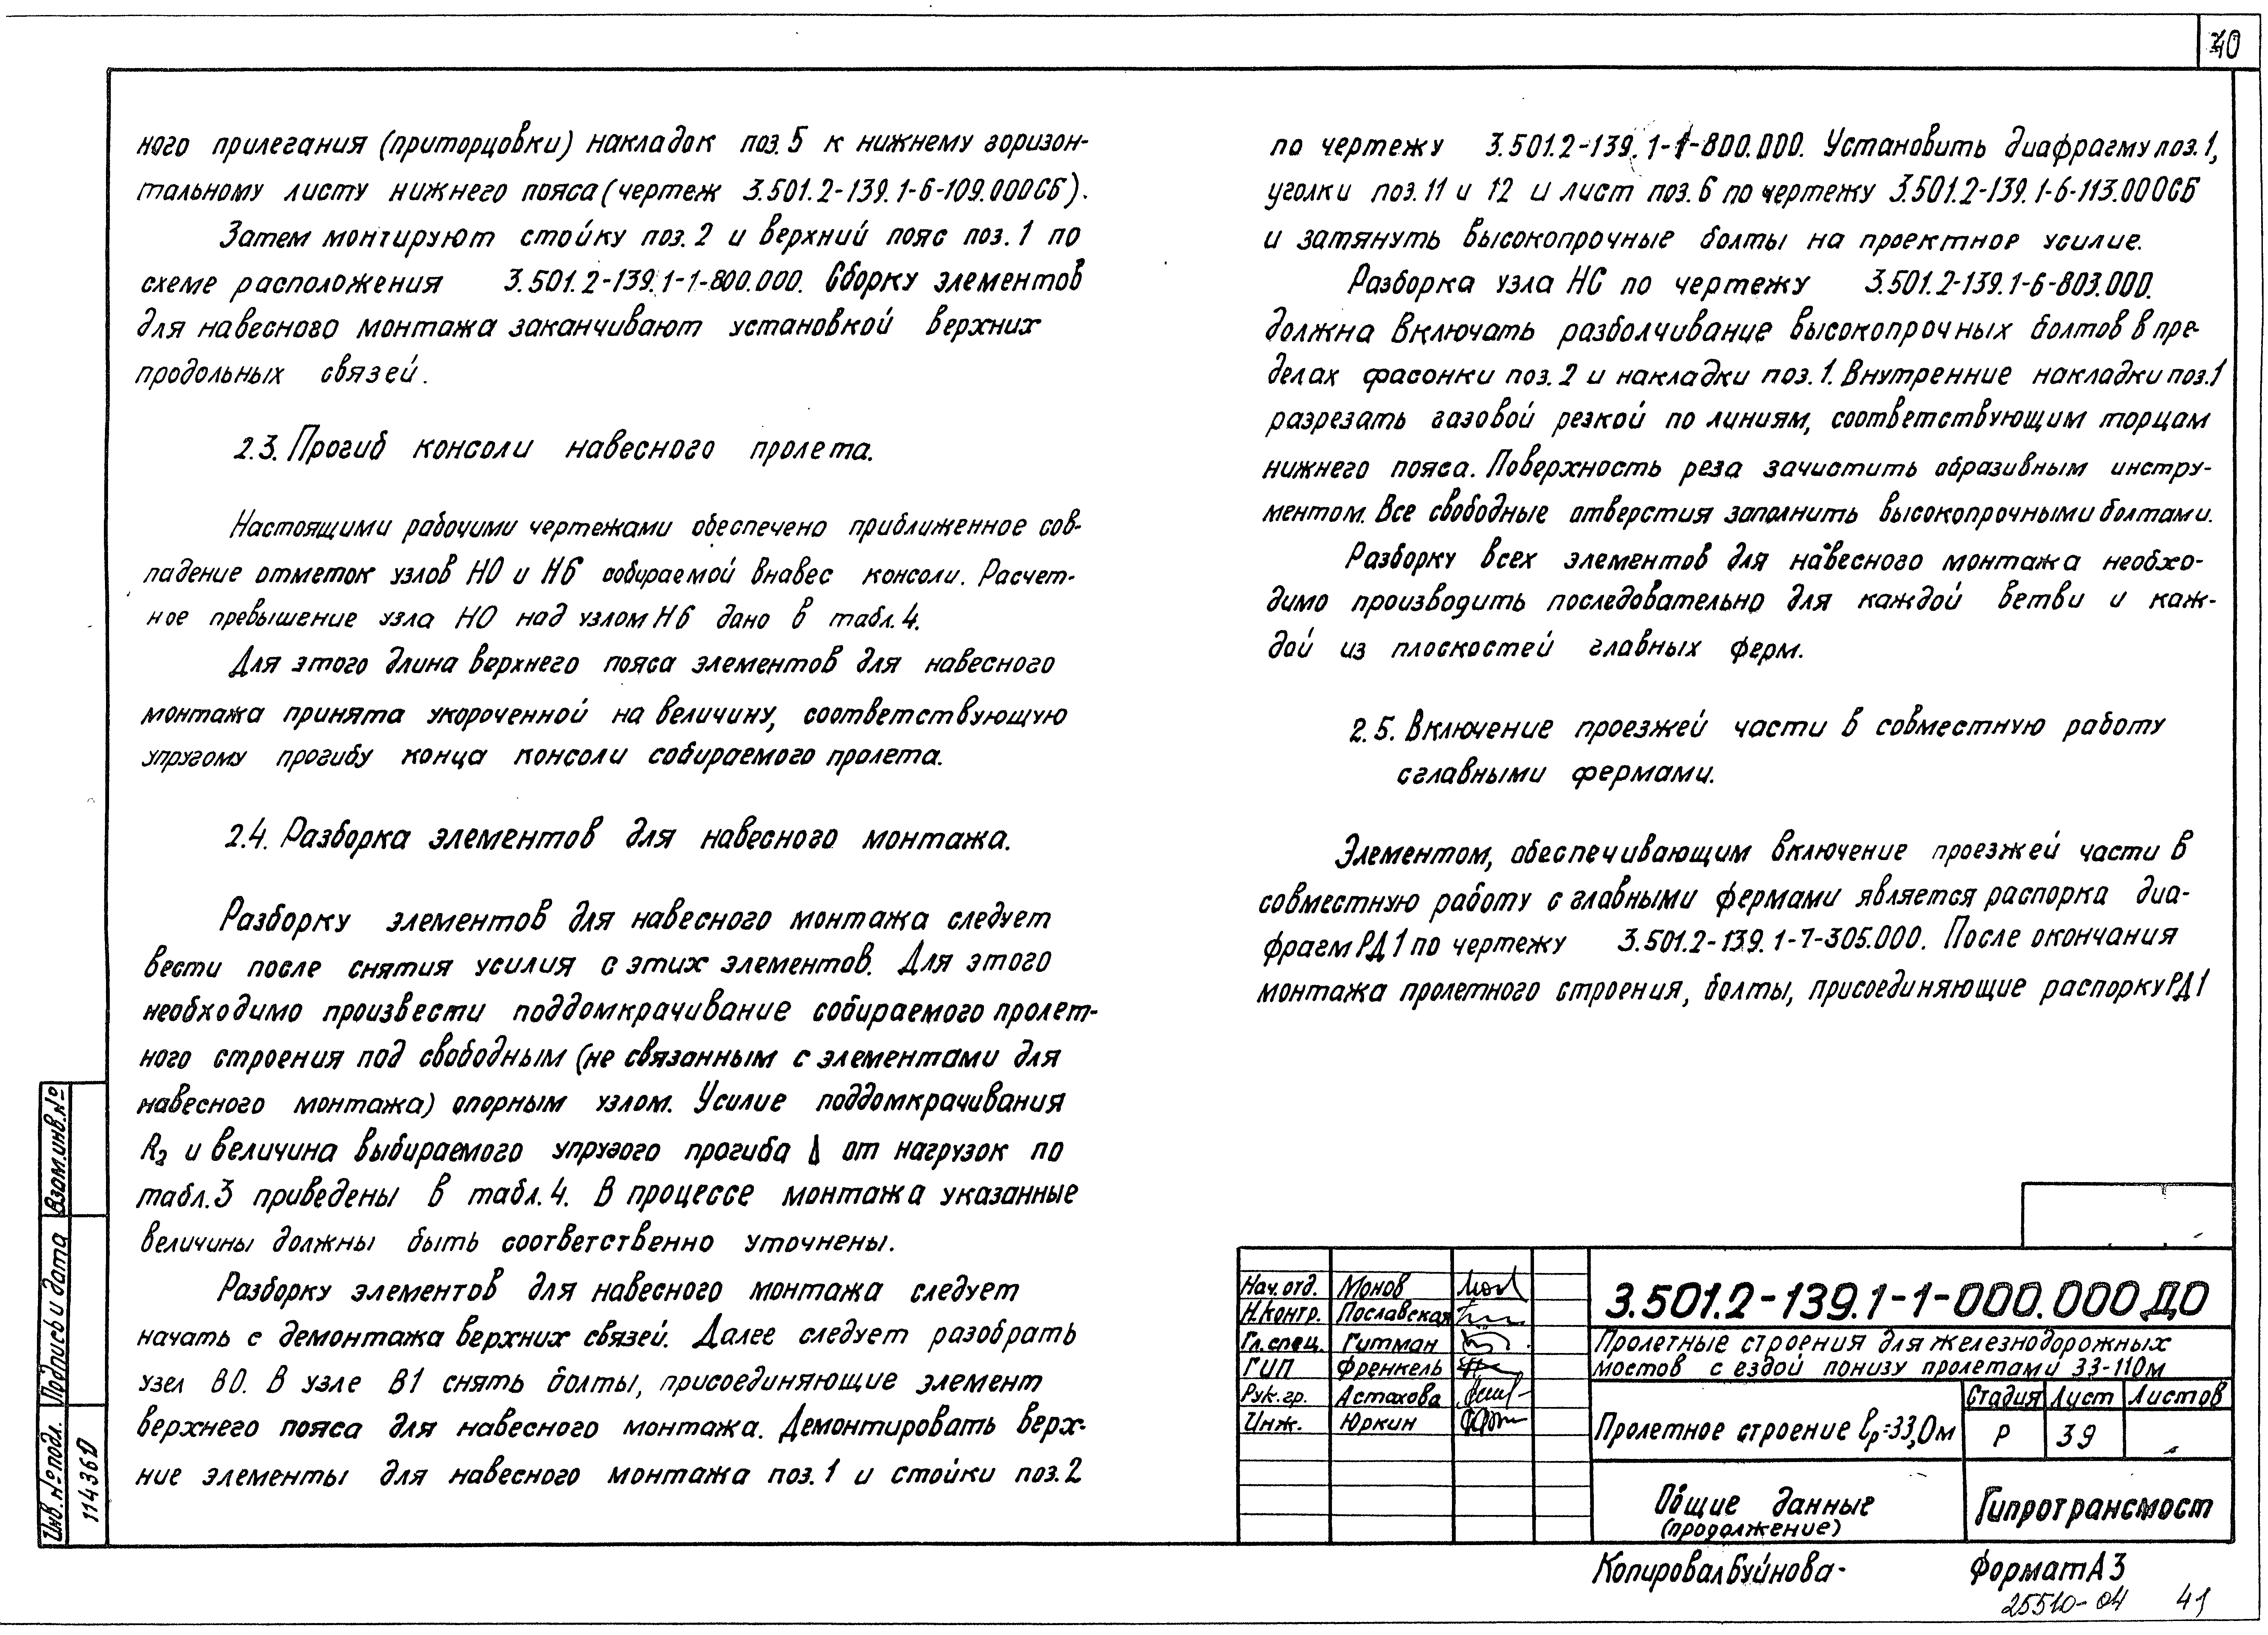 40
ного прилегания (приторцовки) накладок поз. 5 к нижнему горизон-
тальному листу нижнего пояса (чертеж 3.501.2-139.1-6-109.000СБ).
Затем монтируют стойку поз. 2 и верхний пояс поз. 1 по
схеме расположения 3.501.2-139.1-1-800.000. Сборку элементов
для навесного монтажа заканчивают установкой верхних
продольных связей.
2.3. Прогиб консоли навесного пролета.
Настоящими рабочими чертежами обеспечено приближенное сов-
падение отметок узлов Н0 и Н6 собираемой внавес консоли. Расчет-
ное превышение узла Н0 над узлом Н6 дано в табл. 4.
Для этого длина верхнего пояса элементов для навесного
монтажа принята укороченной на величину, соответствующую
упругому прогибу конца консоли собираемого пролета.
2.4. Разборка элементов для навесного монтажа.
Разборку элементов для навесного монтажа следует
вести после снятия усилия с этих элементов. Для этого
необходимо произвести поддомкрачивание собираемого пролет-
ного строения под свободным (не связанным с элементами для
навесного монтажа) опорным узлом. Усилие поддомкрачивания
R₂ и величина выбираемого упругого прогиба Δ от нагрузок по
табл. 3 приведены в табл. 4. В процессе монтажа указанные
величины должны быть соответственно уточнены.
Разборку элементов для навесного монтажа следует
начать с демонтажа верхних связей. Далее следует разобрать
узел В0. В узле В1 снять болты, присоединяющие элемент
верхнего пояса для навесного монтажа. Демонтировать верх-
ние элементы для навесного монтажа поз. 1 и стойки поз. 2
по чертежу 3.501.2-139.1-1-800.000. Установить диафрагму поз. 1,
уголки поз. 11 и 12 и лист поз. 6 по чертежу 3.501.2-139.1-6-113.000СБ
и затянуть высокопрочные болты на проектное усилие.
Разборка узла НС по чертежу 3.501.2-139.1-6-803.000.
должна включать разболчивание высокопрочных болтов в пре-
делах фасонки поз. 2 и накладки поз. 1. Внутренние накладки поз. 1
разрезать газовой резкой по линиям, соответствующим торцам
нижнего пояса. Поверхность реза зачистить абразивным инстру-
ментом. Все свободные отверстия заполнить высокопрочными болтами.
Разборку всех элементов для навесного монтажа необхо-
димо производить последовательно для каждой ветви и каж-
дой из плоскостей главных ферм.
2.5. Включение проезжей части в совместную работу
с главными фермами.
Элементом, обеспечивающим включение проезжей части в
совместную работу с главными фермами является распорка диа-
фрагм РД1 по чертежу 3.501.2-139.1-7-305.000. После окончания
монтажа пролетного строения, болты, присоединяющие распорку РД1
Взам.инв.№
Подпись и дата
Инв.№ подл.
114360
Нач. отд. Монов
Н.контр. Пославская
Гл.спец. Гутман
ГИП Френкель
Рук. гр. Астахова
Инж. Юркин
3.501.2-139.1-1-000.000 ДО
Пролетные строения для железнодорожных
мостов с ездой понизу пролетами 33-110м
Пролетное строение lр=33,0м
Стадия Лист Листов
Р 39
Общие данные
(продолжение)
Гипротрансмост
Копировал Буйнова-
Формат А3
25510-04 41